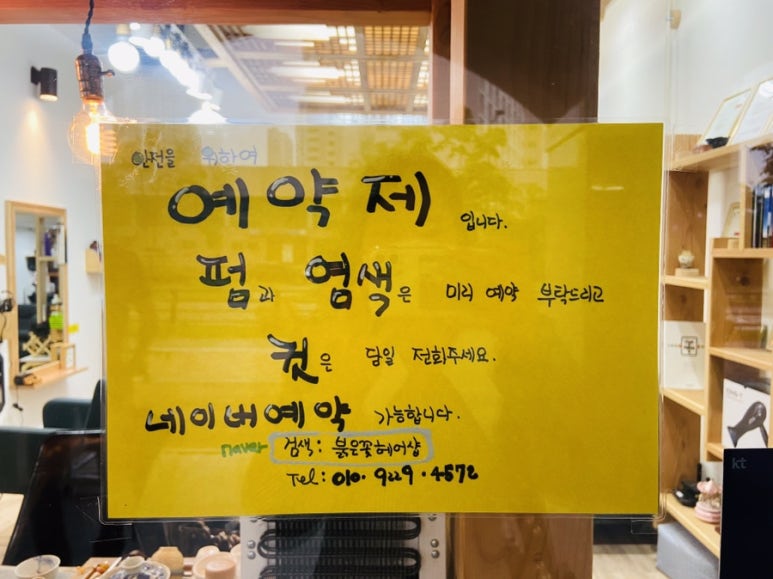 안전을 위하여
예약제 입니다.
펌과 염색은 미리 예약 부탁드리고
컷은 당일 전화주세요.
네이버예약 가능합니다.
naver 검색: 붉은꽃헤어샵
Tel: 010. 9229. 4572
kt